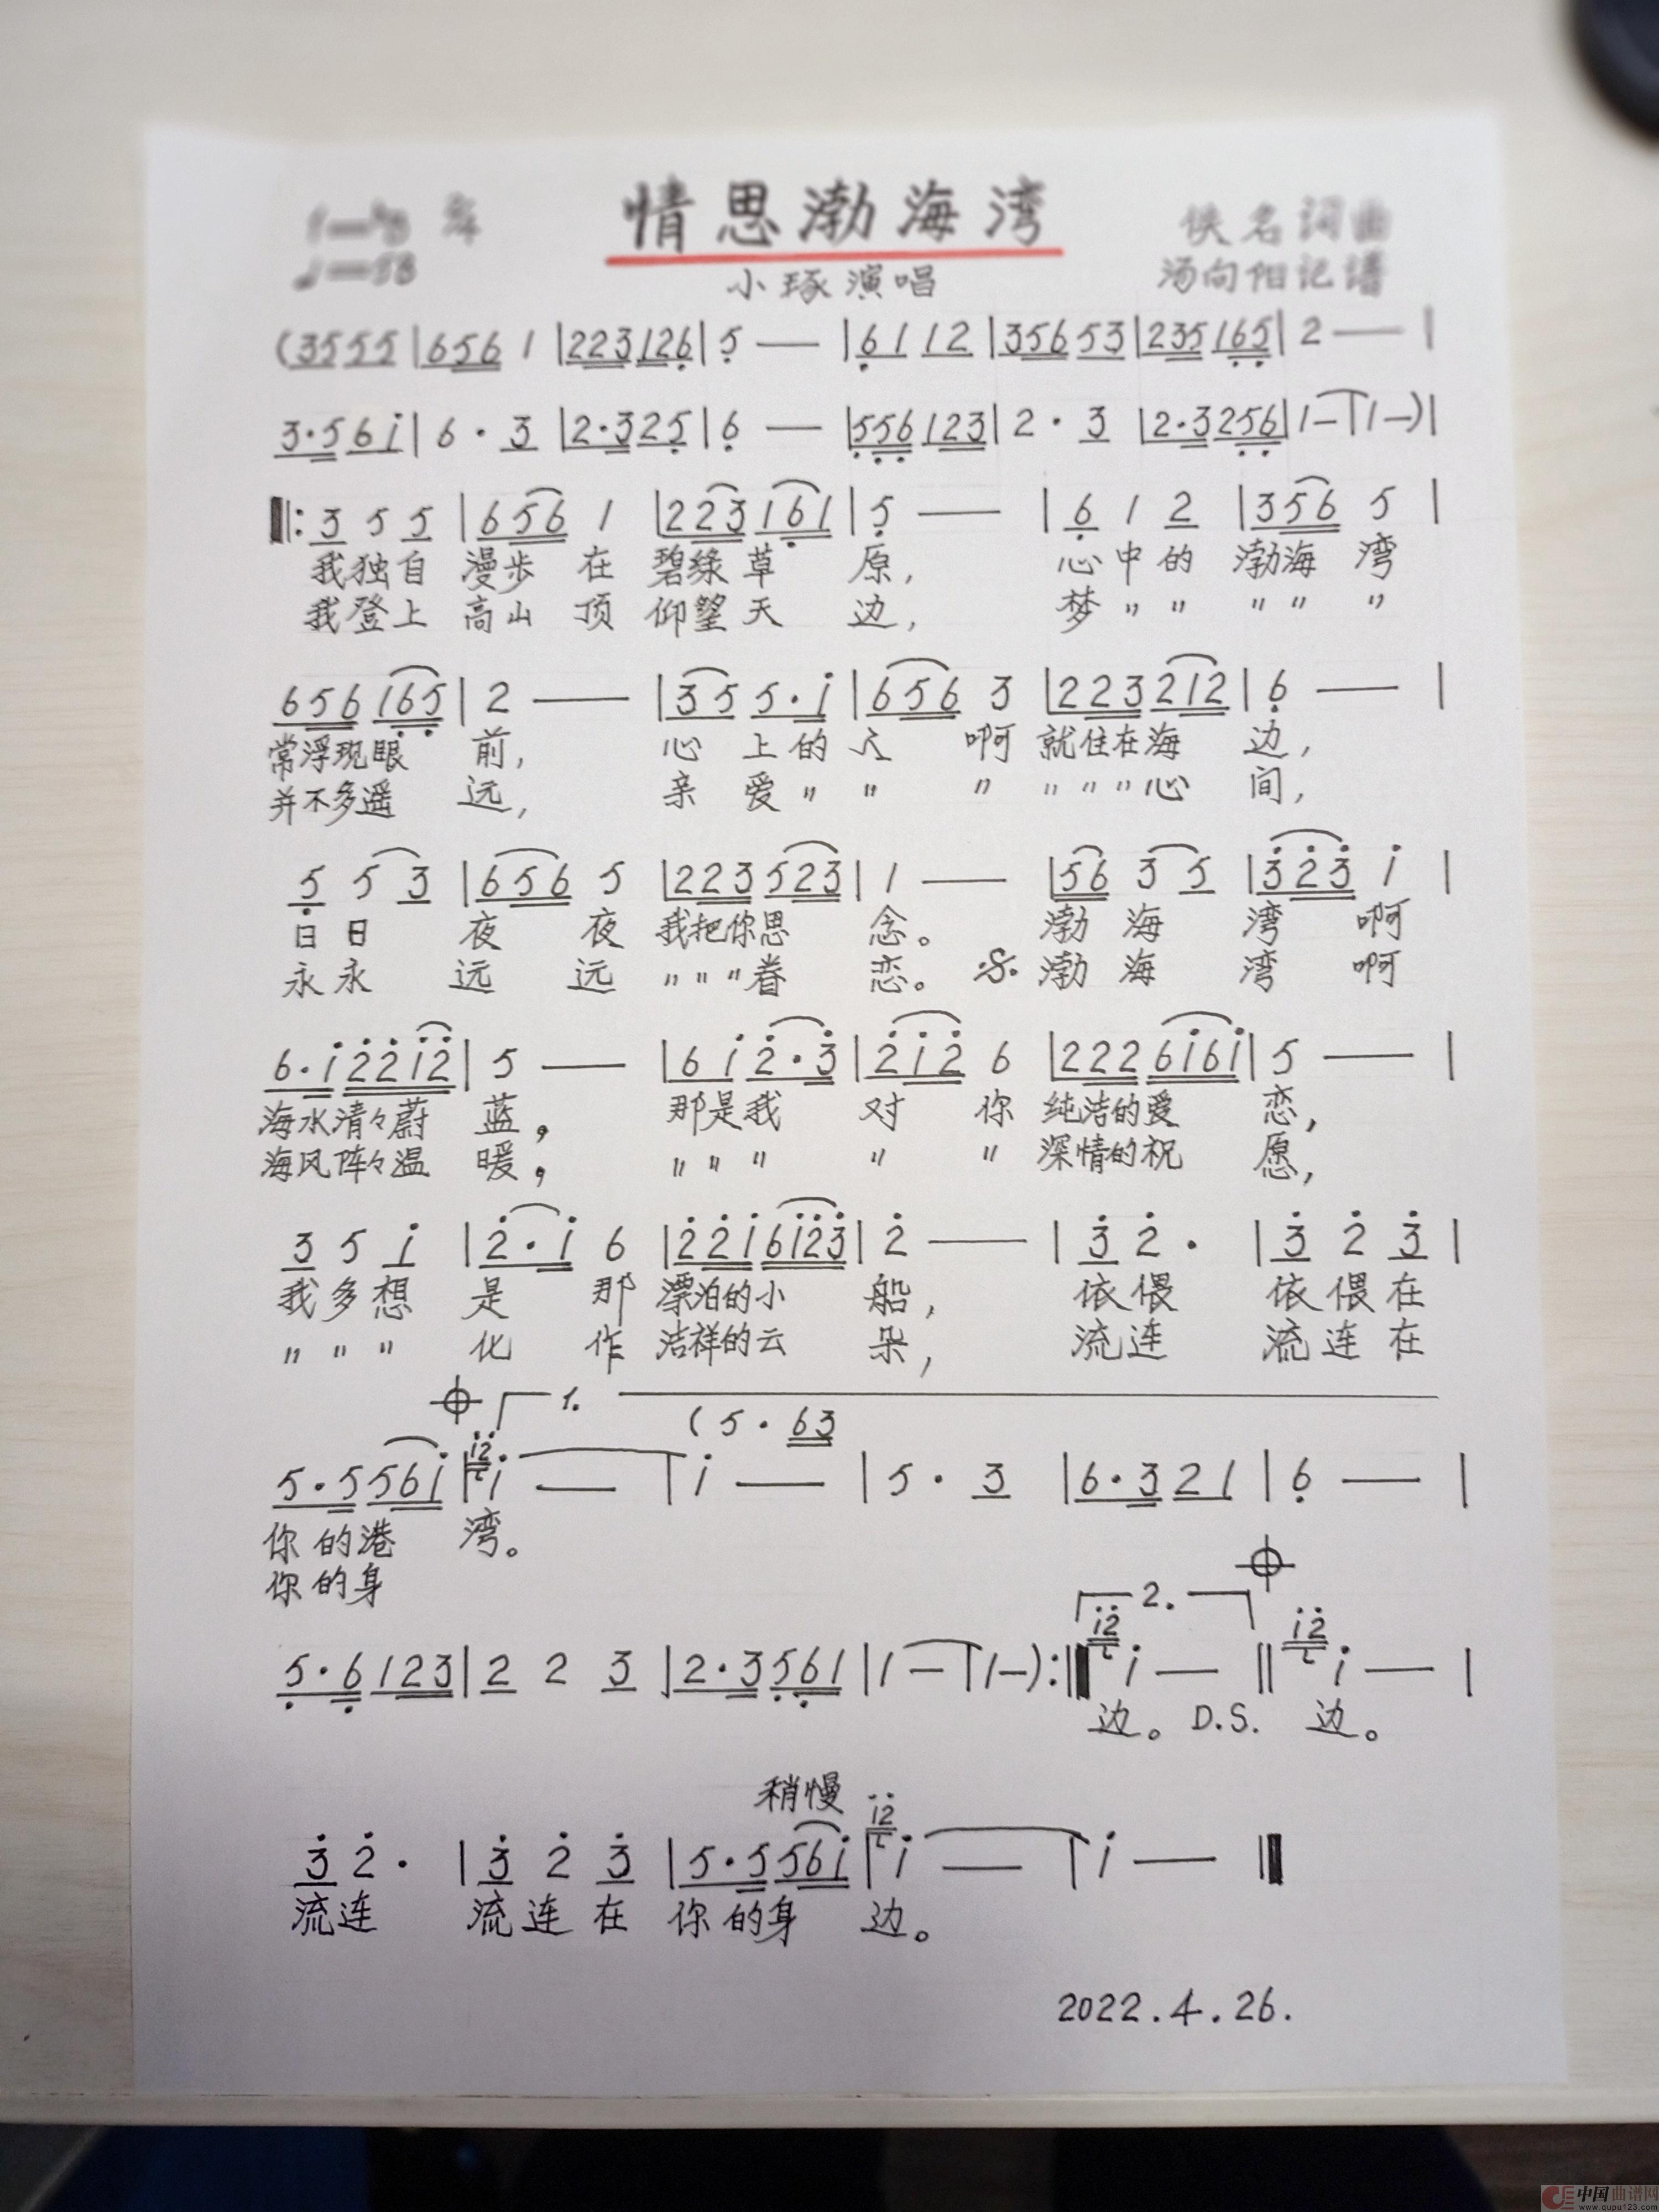 情思渤海湾
佚名词曲
小琢演唱
汤向阳记谱
(3555|6561|223126|5—|6112|35653|235165|2—|
3·561|6·3|2·325|6—|556123|2·3|2·3256|1—|1—)|
‖:355|6561|223161|5—|612|3565|
我独自 漫步 在 碧绿草 原， 心中的 渤海 湾
我登上 高山 顶 仰望天 边， 梦〃〃 〃〃 〃
656165|2—|355·1|6563|223212|6—|
常浮现眼 前， 心 上的人 啊 就住在海 边，
并不多遥 远， 亲 爱〃〃 〃 〃〃〃心 间，
553|6565|223523|1—|5635|3231|
日日 夜 夜 我把你思 念。 渤 海 湾 啊
永永 远 远 〃〃〃眷 恋。 渤 海 湾 啊
6·12212|5—|612·3|2126|2226161|5—|
海水清々蔚 蓝， 那是我 对 你 纯洁的爱 恋，
海风阵々温 暖， 〃〃〃 〃 〃 深情的祝 愿，
351|2·16|2216123|2—|32·|323|
我多想 是 那 漂泊的小 船， 依偎 依偎在
〃〃〃 化 作 洁祥的云 朵， 流连 流连在
1.
(5·63
5·5561|12 1—|1—|5·3|6·321|6—|
你的港 湾。
你的身
2.
5·6123|223|2·3561|1—|1—):‖12 1—‖12 1—|
边。D.S. 边。
稍慢
32·|323|5·5561|12 1—|1—‖
流连 流连在 你的身 边。
2022.4.26.
中国曲谱网
www.qupu123.com